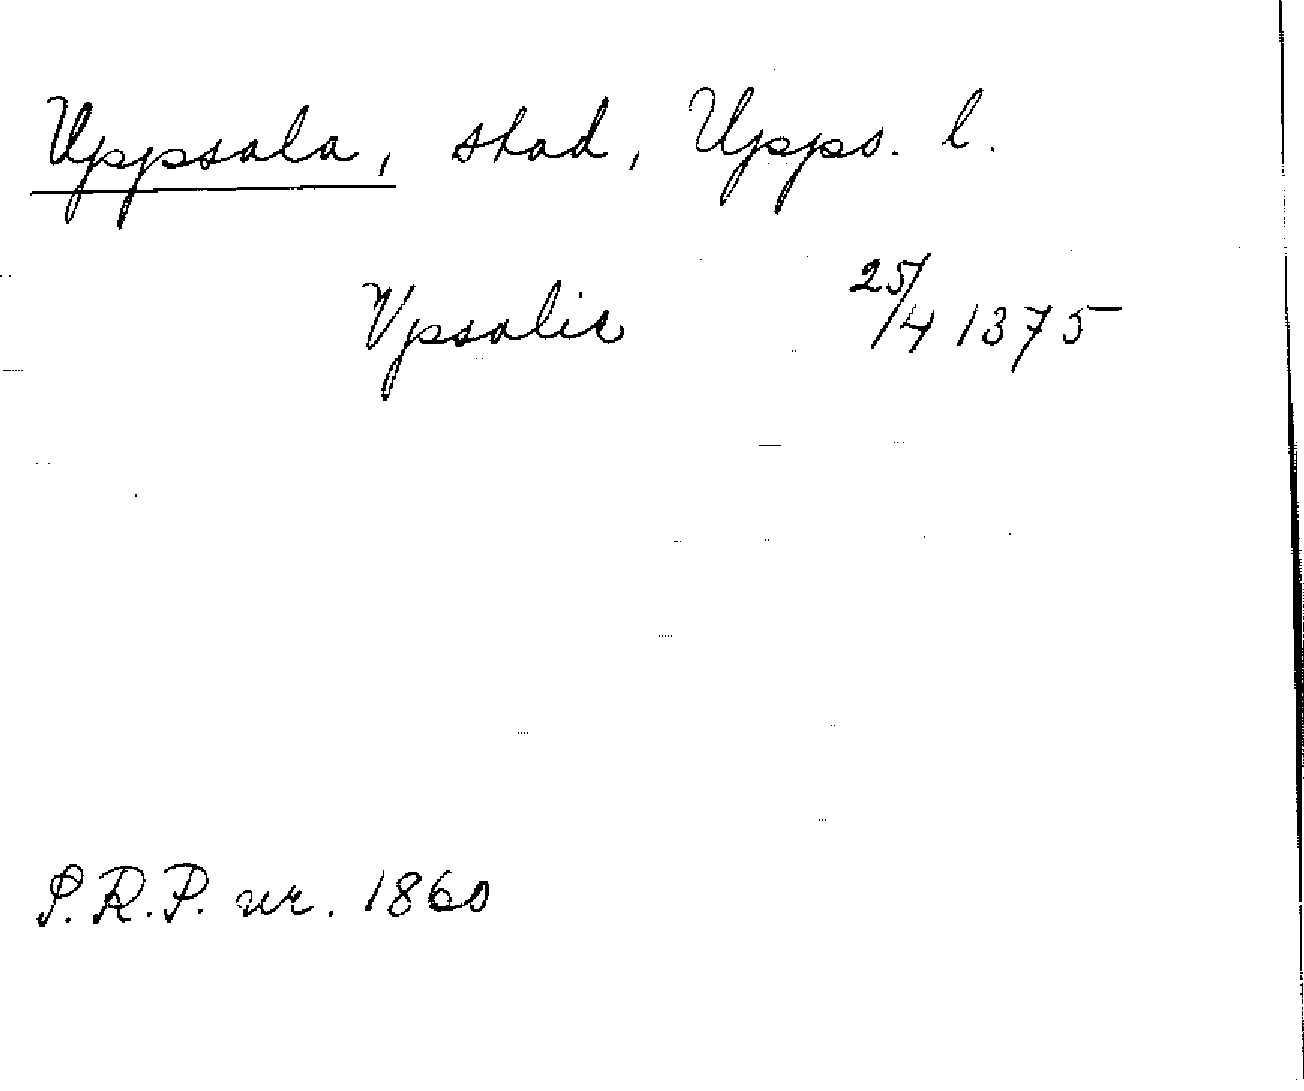 Uppsala, stad, Upps. l.
Vpsalie 25/4 1375
S.R.P. nr. 1860